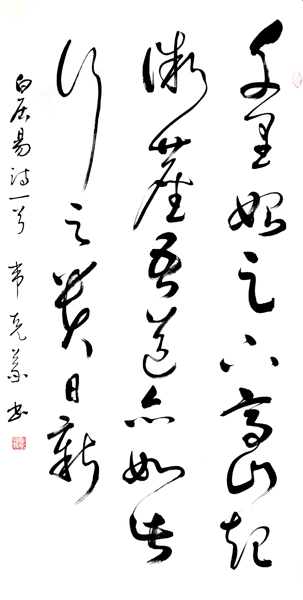 千里始足下高山起
微塵吾道亦如此
行之貴日新
白居易诗一首 韋克 书